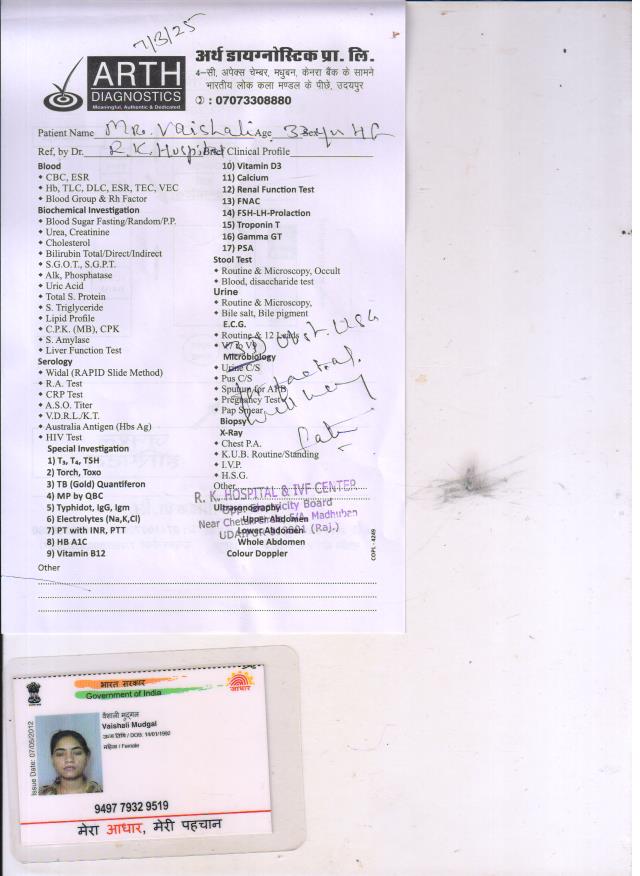 7/3/25
ARTH
DIAGNOSTICS
Meaningful, Authentic & Dedicated
अर्थ डायग्नोस्टिक प्रा. लि.
4–सी, अपेक्स चेम्बर, मधुबन, केनरा बैंक के सामने
भारतीय लोक कला मण्डल के पीछे, उदयपुर
: 07073308880
Patient Name Mrs. Vaishali Age 33 Sex
Ref, by Dr. R.K. Hospital Brief Clinical Profile
Blood
CBC, ESR
Hb, TLC, DLC, ESR, TEC, VEC
Blood Group & Rh Factor
Biochemical Investigation
Blood Sugar Fasting/Random/P.P.
Urea, Creatinine
Cholesterol
Bilirubin Total/Direct/Indirect
S.G.O.T., S.G.P.T.
Alk, Phosphatase
Uric Acid
Total S. Protein
S. Triglyceride
Lipid Profile
C.P.K. (MB), CPK
S. Amylase
Liver Function Test
Serology
Widal (RAPID Slide Method)
R.A. Test
CRP Test
A.S.O. Titer
V.D.R.L./K.T.
Australia Antigen (Hbs Ag)
HIV Test
Special Investigation
1) T₃, T₄, TSH
2) Torch, Toxo
3) TB (Gold) Quantiferon
4) MP by QBC
5) Typhidot, IgG, Igm
6) Electrolytes (Na,K,Cl)
7) PT with INR, PTT
8) HB A1C
9) Vitamin B12
Other
10) Vitamin D3
11) Calcium
12) Renal Function Test
13) FNAC
14) FSH-LH-Prolaction
15) Troponin T
16) Gamma GT
17) PSA
Stool Test
Routine & Microscopy, Occult
Blood, disaccharide test
Urine
Routine & Microscopy,
Bile salt, Bile pigment
E.C.G.
Routine & 12 Leads
Microbiology
Urine C/S
Pus C/S
Sputum for AFB
Pregnancy Test
Pap Smear
Biopsy
X-Ray
Chest P.A.
K.U.B. Routine/Standing
I.V.P.
H.S.G.
Other
Obst. USG
Ultrasonography
Upper Abdomen
Lower Abdomen
Whole Abdomen
Colour Doppler
R. K. HOSPITAL & IVF CENTER
Opp. Electricity Board
Near Chetak Circle, 5/A, Madhuban
UDAIPUR (Raj.)
COPL - 4249
भारत सरकार
Government of India
आधार
वैशाली मुद्गल
Vaishali Mudgal
जन्म तिथि / DOB: 14/01/1992
महिला / Female
Issue Date: 07/05/2012
9497 7932 9519
मेरा आधार, मेरी पहचान